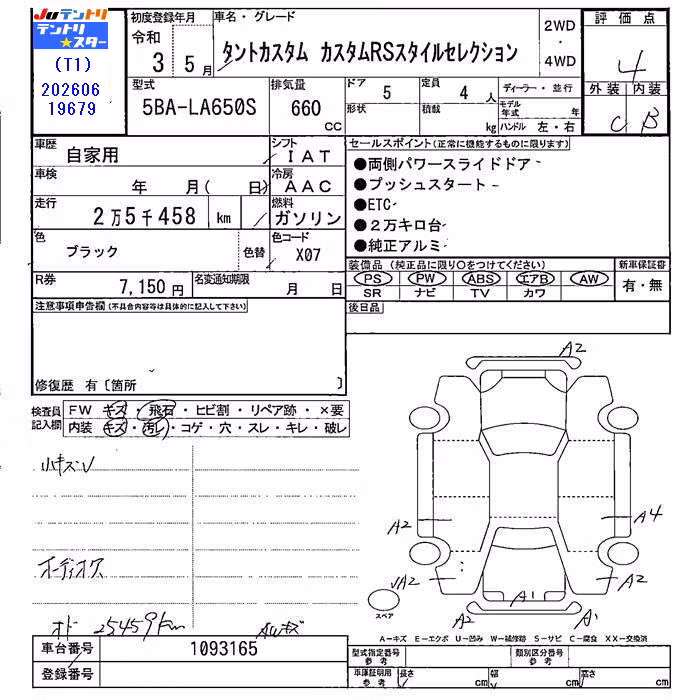 Juテントリ
テントリ
★スター
(T1)
202606
19679
初度登録年月
令和
3 5月
車名・グレード
タントカスタム カスタムRSスタイルセレクション
2WD
・
4WD
評価点
4
外装 内装
C B
型式
5BA-LA650S
排気量
660
cc
ドア 5
形状
定員 4 人
積載 kg
ディーラー・並行
モデル年式 年
ハンドル 左・右
車歴
自家用
シフト
IAT
車検
年 月( 日)
冷房
AAC
走行
2万5千458 km
燃料
ガソリン
色
ブラック
色替
色コード
X07
R券
7,150円
名変通知期限
月 日
セールスポイント(正常に機能するものに限ります)
●両側パワースライドドア
●プッシュスタート
●ETC
●2万キロ台
●純正アルミ
装備品(純正品に限り○をつけてください)
PS PW ABS エアB AW
SR ナビ TV カワ
新車保証書
有・無
後日品
注意事項申告欄(不具合内容等は具体的に記入して下さい)
修復歴 有〔箇所 〕
検査員
記入欄
FW キズ・飛石・ヒビ割・リペア跡・×要
内装 キズ・汚レ・コゲ・穴・スレ・キレ・破レ
小キズV
オーディオレス
オド 25459km
AWキズ
A2
A2
A4
VA2
A2
A1
A2
A1
スペア
A-キズ E-エクボ U-凹み W-補修跡 S-サビ C-腐食 XX-交換済
車台番号 1093165
登録番号
型式指定番号
参考
類別区分番号
参考
車庫証明用
参考
長さ cm 幅 cm 高さ cm